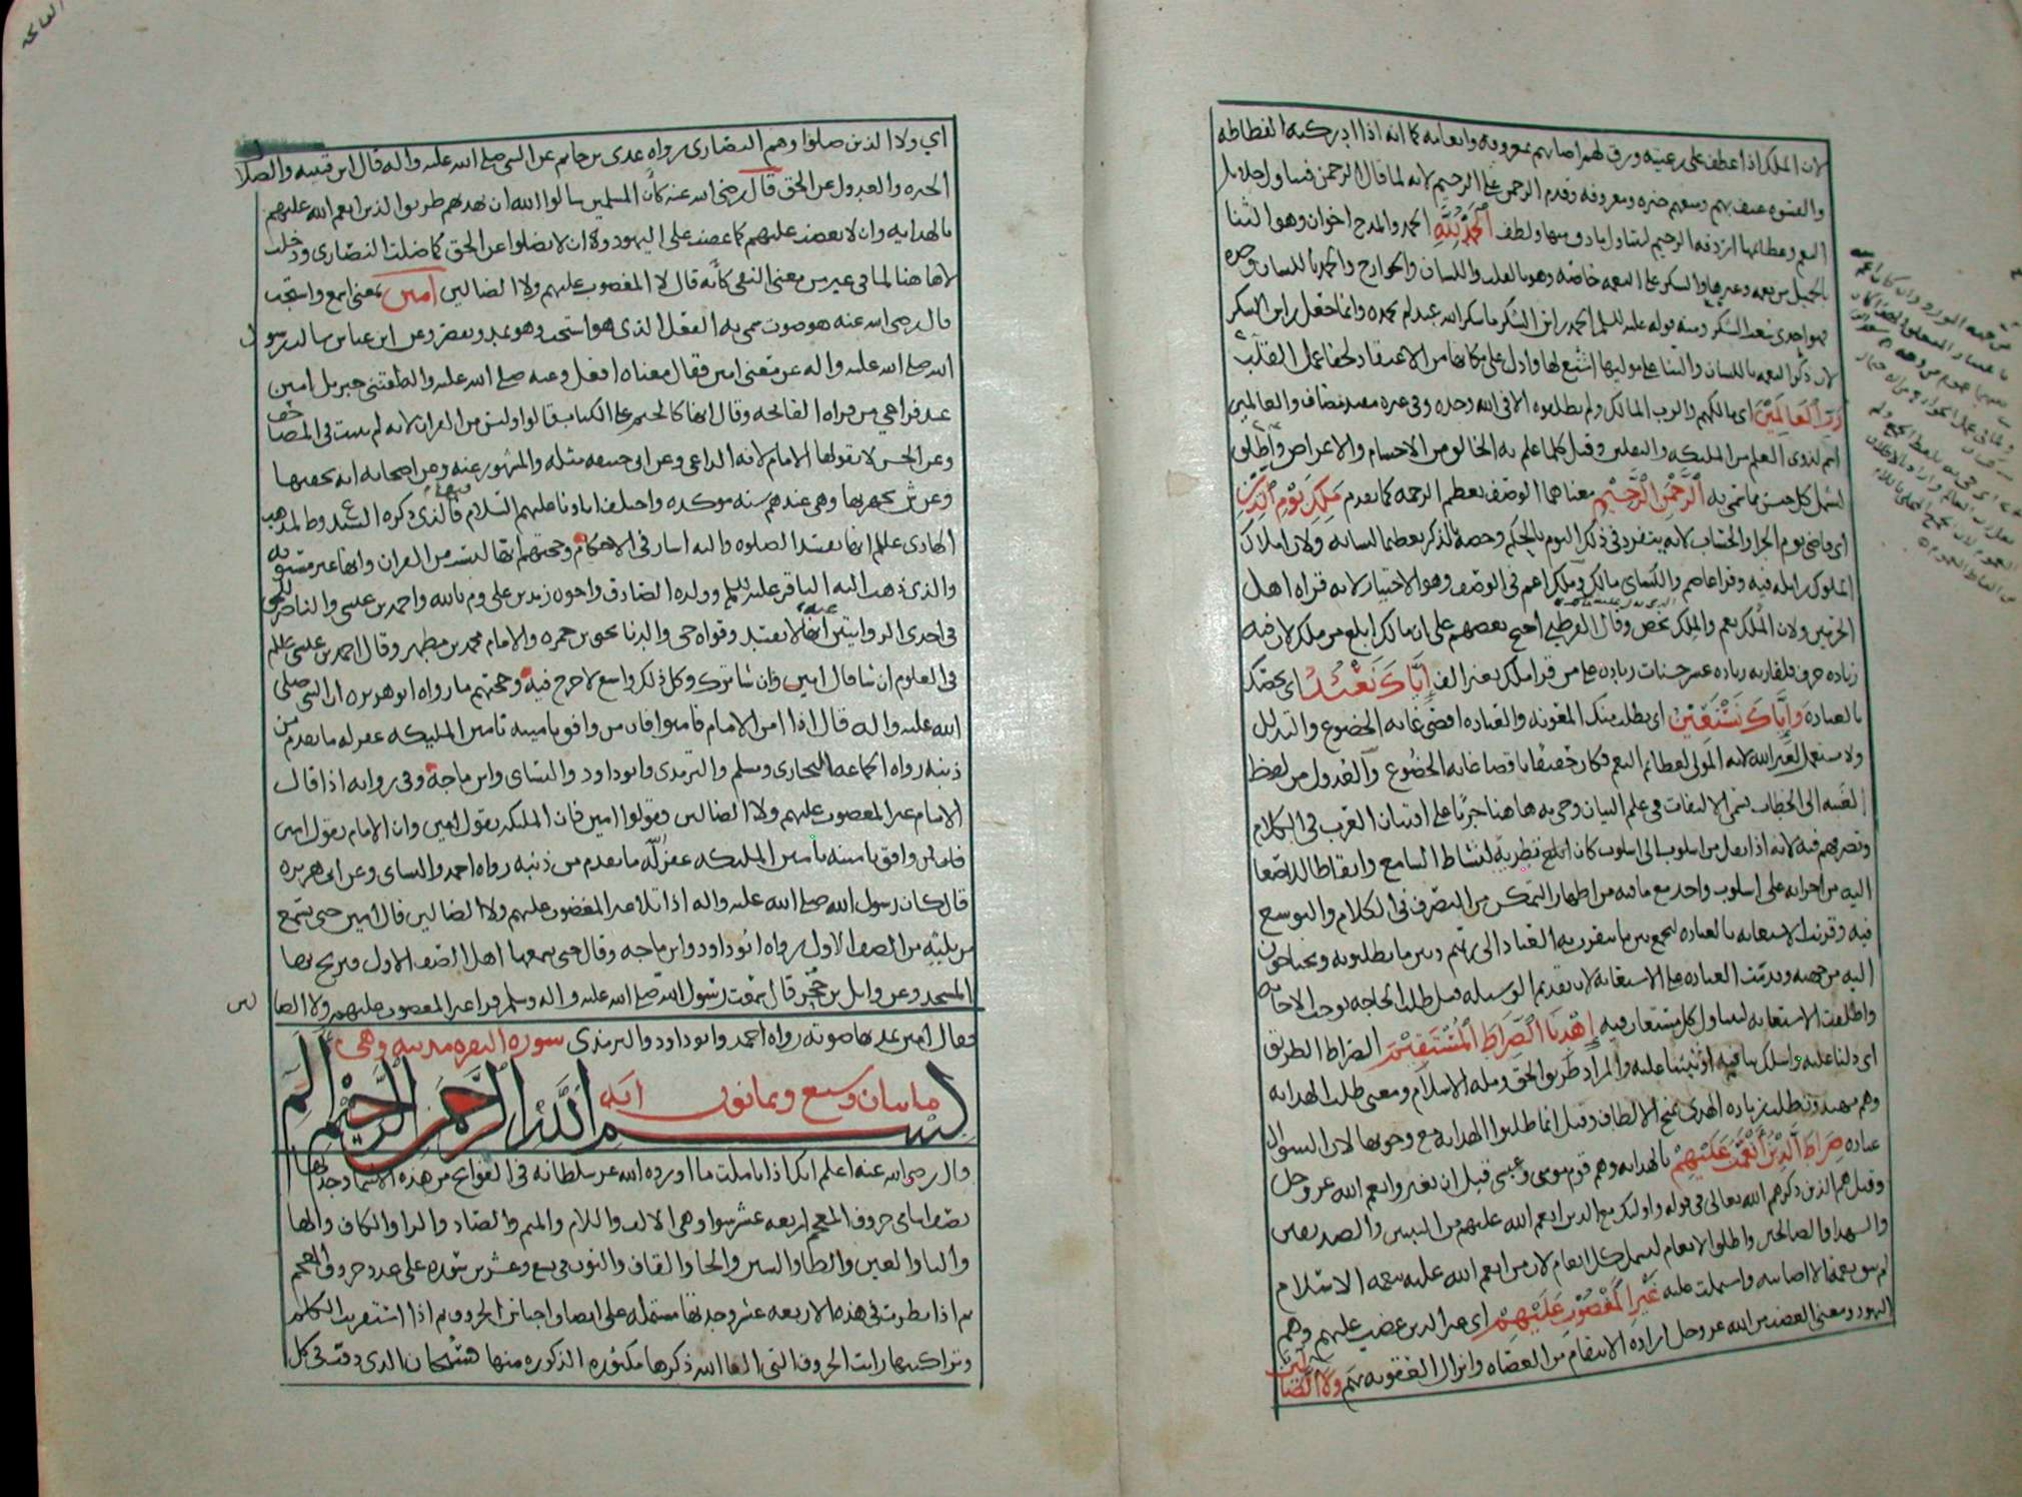 لان الملك اذا عطف على رعيته ورق لهم اصابهم بمعروفه وانعامه كما انه اذا ادركته الفظاظه
والقسوه عنف بهم ومنعهم خيره ومعروفه وقدم الرحمن على الرحيم لانه لما قال الرحمن فتناول جلايل
النعم وعظائمها اردفه الرحيم ليتناول ما دق منها ولطف الحمد لله الحمد والمدح اخوان وهو الثنا
بالجميل من نعمه وغيرها والشكر على النعمه خاصه وهو بالقلب واللسان والجوارح والحمد باللسان وحده
فهو احدى شعب الشكر ومنه قوله عليه السلم الحمد راس الشكر ما شكر الله عبد لم يحمده وانما جعل راس الشكر
لان ذكر النعمه باللسان والثنا على موليها اشيع لها وادل على مكانها من الاعتقاد لخفا عمل القلب
رب العالمين اي مالكهم والرب المالك ولم يطلقوه الا في الله وحده وفي غيره مقيد بمضاف والعالمين
اسم لذوي العلم من المليكه والثقلين وقيل كلما علم به الخالق من الاجسام والاعراض واطلق
ليشمل كل جنس مما سمي به الرحمن الرحيم معناهما الوصف بعظم الرحمه كما تقدم ملك يوم الدين
اي قاضي يوم الجزا والحساب لانه يتفرد في ذلك اليوم بالحكم وخصه بالذكر تعظيما لشانه ولان املاك
الملوك زايله فيه وقرا عاصم والكساي مالك وملك اعم في الوصف وهو الاختيار لانه قراه اهل
الحرمين ولان الملك يعم والملك يخص وقال القرطبي احتج بعضهم على ان مالك ابلغ من ملك لان فيه
زياده حرف فلقاريه زياده عشر حسنات زياده على من قرا ملك بغير الف اياك نعبد اي نخصك
بالعباده واياك نستعين اي نطلب منك المعونه والعباده اقصى غايه الخضوع والتذلل
ولا تستعمل لغير الله لانه المولي لعظائم النعم فكان حقيقا باقصا غايه الخضوع والعدول من لفظ
الغيبه الى الخطاب يسمى الالتفات في علم البيان وجي به هاهنا جريا على افتنان العرب في الكلام
وتصرفهم فيه لانه اذا نقل من اسلوب الى اسلوب كان ابلغ تطرية لنشاط السامع وايقاظا للاصغا
اليه من اجرائه على اسلوب واحد مع ما فيه من اظهار التمكن من التصرف في الكلام والتوسع
فيه وقرنت الاستعانه بالعباده ليجمع بين ما يتقرب به العباد الى ربهم وبين ما يطلبونه ويحتاجون
اليه من جهته وقدمت العباده على الاستعانه لان تقديم الوسيله قبل طلب الحاجه يوجب الاجابه
واطلقت الاستعانه ليتناول كل مستعان فيه اهدنا الصراط المستقيم الصراط الطريق
اي دلنا عليه واسلك بنا فيه او ثبتنا عليه والمراد طريق الحق وملة الاسلام ومعنى طلب الهدايه
وهم مهتدون طلب زياده الهدى بمنح الالطاف وقيل انما طلبوا الهدايه مع وجوبها لان السوال
عباده صراط الذين انعمت عليهم بالهدايه وهم قوم موسى وعيسى قبل ان يغيروا نعم الله عز وجل
وقيل هم الذين ذكرهم الله تعالى في قوله واوليك مع الذين انعم الله عليهم من النبيين والصديقين
والشهدا والصالحين واطلق الانعام ليشمل كل انعام لان من انعم الله عليه بنعمه الاسلام
لم تبق نعمه الا اصابته واشتملت عليه غير المغضوب عليهم اي غير الذين غضبت عليهم وهم
اليهود ومعنى الغضب من الله عز وجل اراده الانتقام من العصاه وانزال العقوبه بهم ولا الضالين
اي ولا الذين ضلوا وهم النصارى رواه عدي بن حاتم عن النبي صلى الله عليه واله قال ابن قتيبه والضلال
الحيره والعدول عن الحق قال رضي الله عنه كان المسلمين سالوا الله ان يهديهم طريق الذين انعم الله عليهم
بالهدايه وان لا يغضب عليهم كما غضب على اليهود ولا ان يضلوا عن الحق كما ضلت النصارى ودخلت
لا هاهنا لما في غير من معنى النفي كانه قال لا المغضوب عليهم ولا الضالين امين بمعنى اسمع واستجب
قال رضي الله عنه هو صوت سمي به الفعل الذي هو استجب وهو يمد ويقصر وعن ابن عباس سالت رسول
الله صلى الله عليه واله عن معنى امين فقال معناه افعل وعنه صلى الله عليه واله لقنني جبريل امين
عند فراغي من قراه الفاتحه وقال انها كالختم على الكتاب قالوا وليس من القران لانه لم يثبت في المصاحف
وعن الحسن لا يقولها الامام لانه الداعي وعن ابي حنيفه مثله والمشهور عنه وعن اصحابه انه يخفيها
وعن ش يجهر بها وهي عندهم سنه موكده واختلف اباونا عليهم السلام فيها فالذي ذكره السيد وط لمذهب
الهادي عليلم انها تفسد الصلوه واليه اشار في الاحكام وحجتهم انها ليست من القران وانها غير مشبوته
والذي ذهب اليه الباقر عليه السلم وولده الصادق واخوه زيد بن علي وم بالله واحمد بن عيسى والناصر للحق
في احدى الروايتين عنه انها لا تفسد وقواه حي والدنا يحيى بن حمزه والامام محمد بن مطهر وقال احمد بن عيسى عللم
في العلوم ان شا قال امين وان شا ترك وكل ذلك واسع لا حرج فيه وحجتهم ما رواه ابو هريره ان النبي صلى
الله عليه واله قال اذا امن الامام فامنوا فان من وافق تامينه تامين المليكه غفر له ما تقدم من
ذنبه رواه الجماعه البخاري ومسلم والترمذي وابو داود والنساي وابن ماجه وفي روايه اذا قال
الامام غير المغضوب عليهم ولا الضالين فقولوا امين فان المليكه يقول امين وان الامام يقول امين
فمن وافق تامينه تامين المليكه غفر له ما تقدم من ذنبه رواه احمد والنساي وعن ابي هريره
قال كان رسول الله صلى الله عليه واله اذا تلا غير المغضوب عليهم ولا الضالين قال امين حتى يسمع
من يليه من الصف الاول رواه ابو داود وابن ماجه وقال حتى يسمعها اهل الصف الاول فيرتج بها
المسجد وعن وايل بن حجر قال سمعت رسول الله صلى الله عليه واله وسلم قرا غير المغضوب عليهم ولا الضالين
فقال امين يمد بها صوته رواه احمد وابو داود والترمذي سورة البقره مدنيه وهي
مايتان وسبع وثمانون ايه
بسم الله الرحمن الرحيم الم
قال رضي الله عنه اعلم انك اذا تاملت ما اورده الله عز سلطانه في الفواتح من هذه الاسما وجدتها
نصف اسامي حروف المعجم اربعه عشر سوا وهي الالف واللام والميم والصاد والرا والكاف والها
واليا والعين والطا والسين والحا والقاف والنون في تسع وعشرين سوره على عدد حروف المعجم
ثم اذا نظرت في هذه الاربعه عشر وجدتها مشتمله على انصاف اجناس الحروف ثم اذا استقريت الكلم
وتراكيبها رايت الحروف التي الغا الله ذكرها مكثوره بالمذكوره منها فسبحان الذي دقت في كل